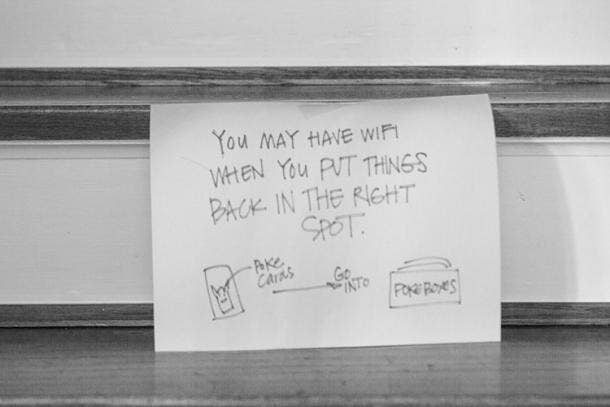 YOU MAY HAVE WIFI
WHEN YOU PUT THINGS
BACK IN THE RIGHT
SPOT.
POKE
CARDS
GO
INTO
POKEBOXES